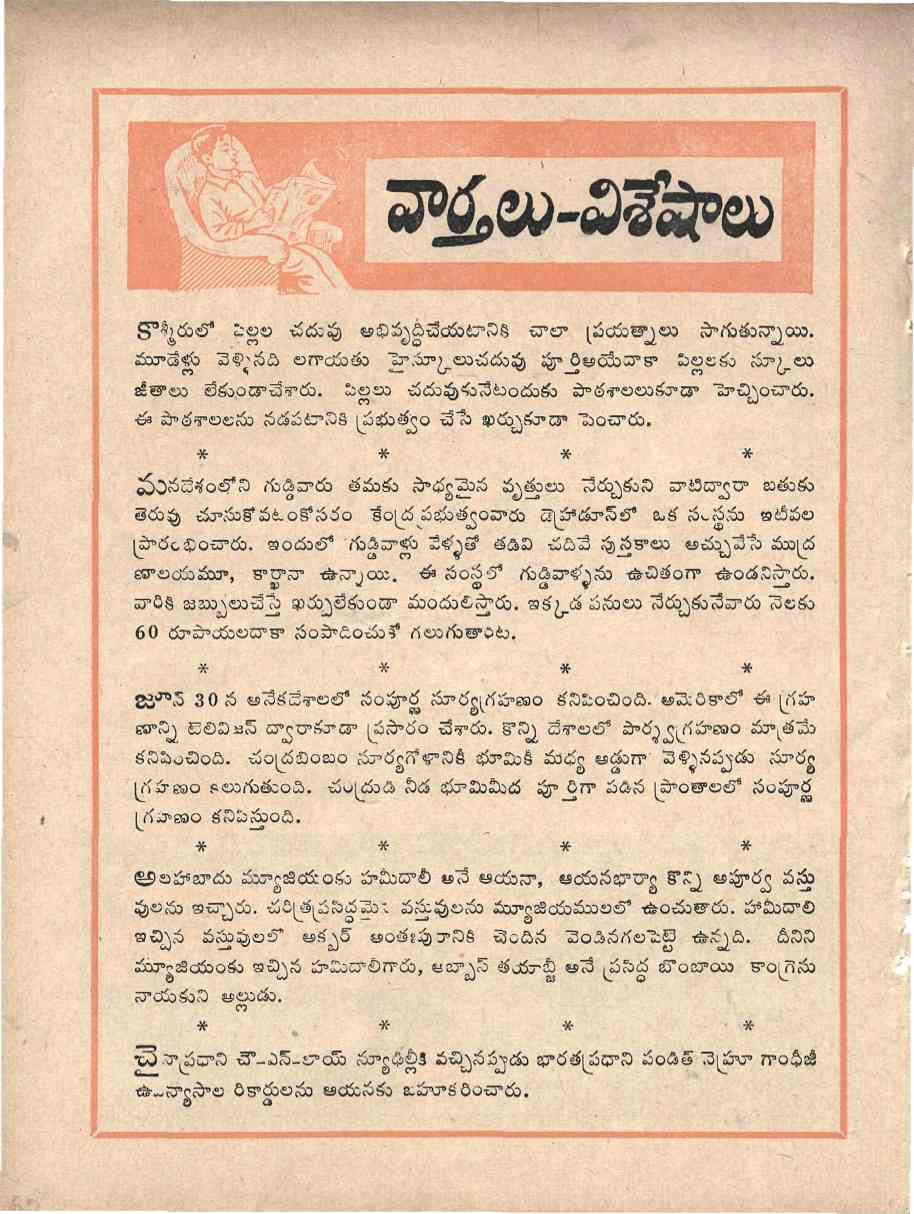 వార్తలు-విశేషాలు
కాశ్మీరులో పిల్లల చదువు అభివృద్ధిచేయటానికి చాలా ప్రయత్నాలు సాగుతున్నాయి.
మూడేళ్లు వెళ్ళినది లగాయతు హైస్కూలుచదువు పూర్తిఅయేదాకా పిల్లలకు స్కూలు
జీతాలు లేకుండాచేశారు. పిల్లలు చదువుకునేటందుకు పాఠశాలలుకూడా హెచ్చించారు.
ఈ పాఠశాలలను నడపటానికి ప్రభుత్వం చేసే ఖర్చుకూడా పెంచారు.
* * * *
మనదేశంలోని గుడ్డివారు తమకు సాధ్యమైన వృత్తులు నేర్చుకుని వాటిద్వారా బతుకు
తెరువు చూసుకోవటంకోసరం కేంద్రప్రభుత్వంవారు డెహాడూన్‌లో ఒక సంస్థను ఇటీవల
ప్రారంభించారు. ఇందులో గుడ్డివాళ్లు వేళ్ళతో తడివి చదివే పుస్తకాలు అచ్చువేసే ముద్ర
ణాలయమూ, కార్ఖానా ఉన్నాయి. ఈ సంస్థలో గుడ్డివాళ్ళను ఉచితంగా ఉండనిస్తారు.
వారికి జబ్బులుచేస్తే ఖర్చులేకుండా మందులిస్తారు. ఇక్కడ పనులు నేర్చుకునేవారు నెలకు
60 రూపాయలదాకా సంపాదించుకో గలుగుతారట.
* * * *
జూన్ 30 న అనేకదేశాలలో సంపూర్ణ సూర్యగ్రహణం కనిపించింది. అమెరికాలో ఈ గ్రహ
ణాన్ని టెలివిజన్ ద్వారాకూడా ప్రసారం చేశారు. కొన్ని దేశాలలో పార్శ్వగ్రహణం మాత్రమే
కనిపించింది. చంద్రబింబం సూర్యగోళానికీ భూమికీ మధ్య అడ్డుగా వెళ్ళినప్పుడు సూర్య
గ్రహణం కలుగుతుంది. చంద్రుడి నీడ భూమిమీద పూర్తిగా పడిన ప్రాంతాలలో సంపూర్ణ
గ్రహణం కనిపిస్తుంది.
* * * *
అలహాబాదు మ్యూజియంకు హమీదాలీ అనే ఆయనా, ఆయనభార్యా కొన్ని అపూర్వ వస్తు
వులను ఇచ్చారు. చరిత్రప్రసిద్ధమైన వస్తువులను మ్యూజియములలో ఉంచుతారు. హామీదాలి
ఇచ్చిన వస్తువులలో అక్బర్ అంతఃపురానికి చెందిన వెండినగలపెట్టె ఉన్నది. దీనిని
మ్యూజియంకు ఇచ్చిన హమీదాలిగారు, అబ్బాస్ తయాబ్జీ అనే ప్రసిద్ధ బొంబాయి కాంగ్రెసు
నాయకుని అల్లుడు.
* * * *
చైనాప్రధాని చౌ-ఎన్-లాయ్ న్యూఢిల్లీకి వచ్చినప్పుడు భారతప్రధాని పండిత్ నెహ్రూ గాంధీజీ
ఉపన్యాసాల రికార్డులను ఆయనకు బహూకరించారు.